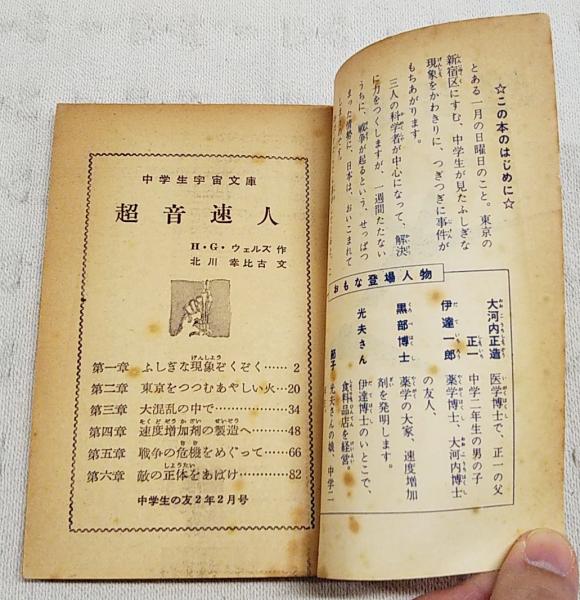 ☆この本のはじめに☆
とある一月の日曜日のこと。東京の
新宿区にすむ、中学生が見たふしぎな
現象をかわきりに、つぎつぎに事件が
もちあがります。
三人の科学者が中心になって、解決
に力をつくしますが、一週間たたない
うちに、戦争が起るという、せっぱつ
まった情勢に、日本は、おいこまれて
しまったのです。
おもな登場人物
大河内正造 医学博士で、正一の父
正一 中学二年生の男の子
伊達一郎 薬学博士、大河内博士
の友人、
黒部博士 薬学の大家、速度増加
剤を発明します。
光夫さん 伊達博士のいとこで、
食料品店を経営
光夫さんの娘、中学二
中学生宇宙文庫
超音速人
H・G・ウェルズ 作
北川 幸比古 文
第一章 ふしぎな現象ぞくぞく……2
第二章 東京をつつむあやしい火…20
第三章 大混乱の中で……………34
第四章 速度増加剤の製造へ……48
第五章 戦争の危機をめぐって…66
第六章 敵の正体をあばけ………82
中学生の友2年2月号